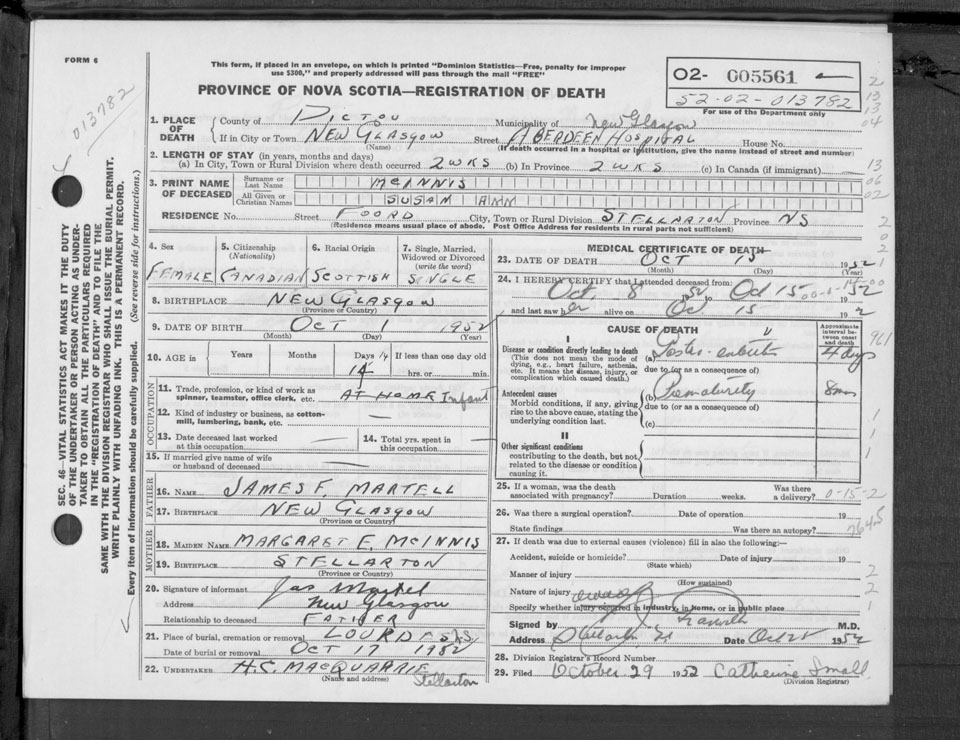 FORM 6
This form, if placed in an envelope, on which is printed "Dominion Statistics—Free, penalty for improper
use $300," and properly addressed will pass through the mail "FREE"
PROVINCE OF NOVA SCOTIA—REGISTRATION OF DEATH
02- 005561
52-02-013782
For use of the Department only
013782
SEC. 46—VITAL STATISTICS ACT MAKES IT THE DUTY
OF THE UNDERTAKER OR PERSON ACTING AS UNDER-
TAKER TO OBTAIN ALL THE PARTICULARS REQUIRED
IN THE "REGISTRATION OF DEATH" AND TO FILE THE
SAME WITH THE DIVISION REGISTRAR WHO SHALL ISSUE THE BURIAL PERMIT.
WRITE PLAINLY WITH UNFADING INK. THIS IS A PERMANENT RECORD.
Every item of information should be carefully supplied. (See reverse side for instructions.)
1. PLACE OF DEATH
County of PICTOU Municipality of New Glasgow
If in City or Town NEW GLASGOW Street ABERDEEN HOSPITAL House No.
(Name) (If death occurred in a hospital or institution, give the name instead of street and number)
2. LENGTH OF STAY (in years, months and days)
(a) In City, Town or Rural Division where death occurred 2 WKS (b) In Province 2 WKS (c) In Canada (if immigrant)
3. PRINT NAME OF DECEASED
Surname or Last Name MCINNIS
All Given or Christian Names SUSAN ANN
RESIDENCE No. Street FOORD City, Town or Rural Division STELLARTON Province NS
(Residence means usual place of abode. Post Office Address for residents in rural parts not sufficient)
4. Sex FEMALE
5. Citizenship (Nationality) CANADIAN
6. Racial Origin SCOTTISH
7. Single, Married, Widowed or Divorced (write the word) SINGLE
8. BIRTHPLACE NEW GLASGOW
(Province or Country)
9. DATE OF BIRTH OCT 1 1952
(Month) (Day) (Year)
10. AGE in Years Months Days 14 If less than one day old
14 hrs. or min.
OCCUPATION
11. Trade, profession, or kind of work as
spinner, teamster, office clerk, etc. AT HOME Infant
12. Kind of industry or business, as cotton-
mill, lumbering, bank, etc.
13. Date deceased last worked
at this occupation
14. Total yrs. spent in
this occupation
15. If married give name of wife
or husband of deceased
FATHER
16. NAME JAMES F. MARTELL
17. BIRTHPLACE NEW GLASGOW
(Province or Country)
MOTHER
18. MAIDEN NAME MARGARET E. MCINNIS
19. BIRTHPLACE STELLARTON
(Province or Country)
20. Signature of informant Jas Martel
Address New Glasgow
Relationship to deceased FATHER
21. Place of burial, cremation or removal LOURDES NS
Date of burial or removal OCT 17 1952
22. UNDERTAKER H.C. MACQUARRIE
(Name and address) Stellarton
MEDICAL CERTIFICATE OF DEATH
23. DATE OF DEATH OCT 15 1952
(Month) (Day) (Year)
24. I HEREBY CERTIFY that I attended deceased from
Oct. 8 1952 to Oct 15 1952
and last saw her alive on Oct 15 1952
CAUSE OF DEATH
Approximate interval between onset and death
I
Disease or condition directly leading to death
(This does not mean the mode of
dying, e.g., heart failure, asthenia,
etc. It means the disease, injury, or
complication which caused death.)
(a) Gastro-enteritis 4 days
due to (or as a consequence of)
Antecedent causes
Morbid conditions, if any, giving
rise to the above cause, stating the
underlying condition last.
(b) Prematurity 8 mos
due to (or as a consequence of)
(c)
II
Other significant conditions
contributing to the death, but not
related to the disease or condition
causing it.
25. If a woman, was the death
associated with pregnancy? Duration weeks. Was there
a delivery? 0-15-2
26. Was there a surgical operation? Date of operation 19
State findings Was there an autopsy? 764.5
27. If death was due to external causes (violence) fill in also the following:—
Accident, suicide or homicide? Date of injury 19
(State which)
Manner of injury
(How sustained)
Nature of injury
Specify whether injury occurred in industry, in home, or in public place
Signed by M.D.
Address Stellarton Date Oct 1952
28. Division Registrar's Record Number
29. Filed October 29 1952 Catherine Small
(Division Registrar)